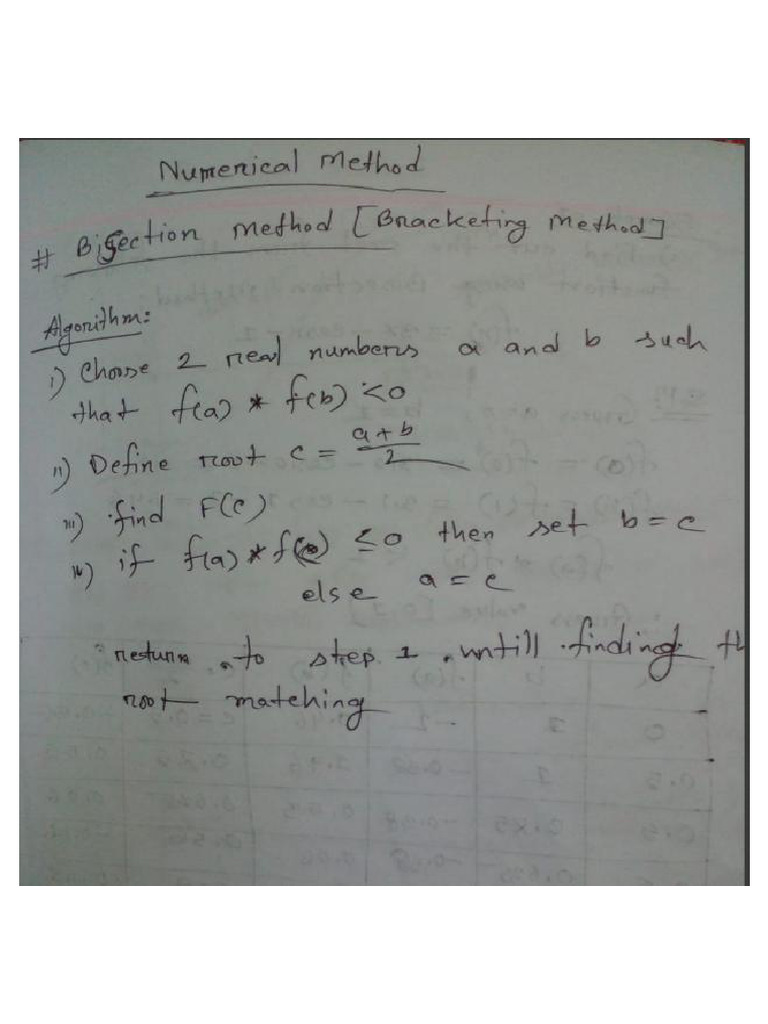 Numerical Method
# Bisection Method [Bracketing Method]
Algorithm:
i) Choose 2 real numbers a and b such
that f(a) * f(b) < 0
ii) Define root c = a+b/2
iii) find F(c)
iv) if f(a) * f(c) ≤ 0 then set b = c
else a = c
return to step 1 untill finding th
root matching